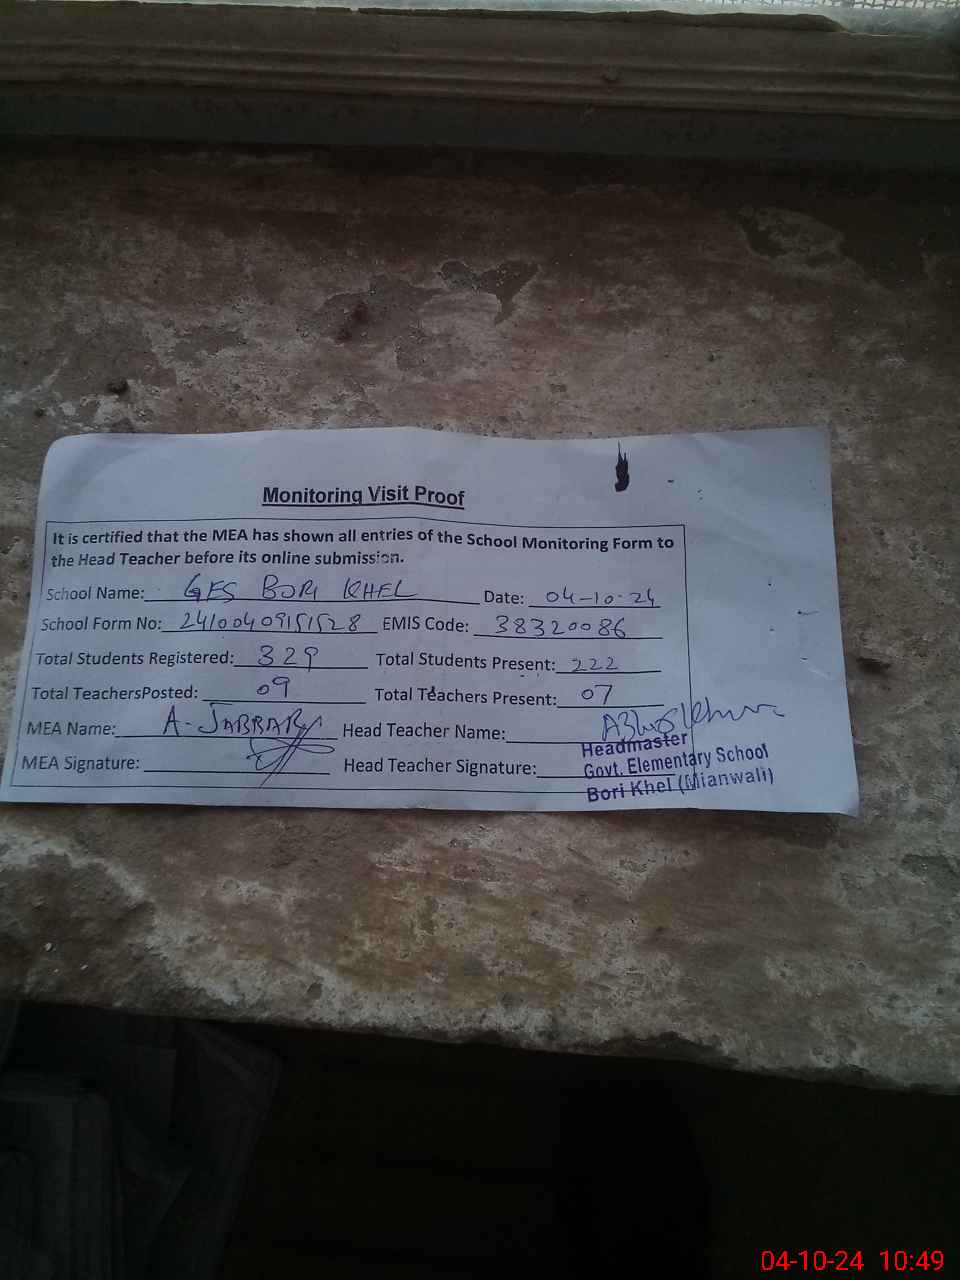 Monitoring Visit Proof
It is certified that the MEA has shown all entries of the School Monitoring Form to
the Head Teacher before its online submission.
School Name: GES BORI KHEL Date: 04-10-24
School Form No: 24100409151528 EMIS Code: 38320086
Total Students Registered: 329 Total Students Present: 222
Total TeachersPosted: 09 Total Teachers Present: 07
MEA Name: A-JABBAR Head Teacher Name:
MEA Signature: Head Teacher Signature:
Headmaster
Govt. Elementary School
Bori Khel (Mianwali)
04-10-24 10:49